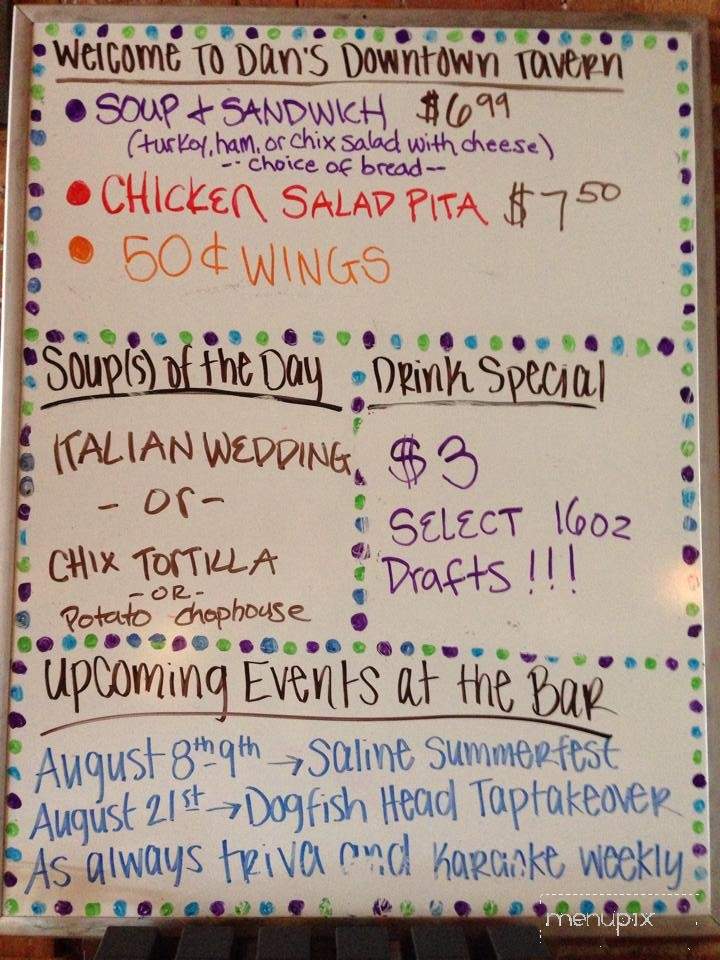 Welcome To Dan's Downtown Tavern
• SOUP + SANDWICH $6.99
(turkey, ham, or chix salad with cheese)
-- choice of bread --
• CHICKEN SALAD PITA $7.50
• 50¢ WINGS
Soup(s) of the Day
ITALIAN WEDDING
- or -
CHIX TORTILLA
- OR -
Potato chophouse
Drink Special
$3
SELECT 16oz
Drafts!!!
Upcoming Events at the Bar
August 8th-9th → Saline Summerfest
August 21st → Dogfish Head Taptakeover
As always triva and Karaoke weekly
menupix